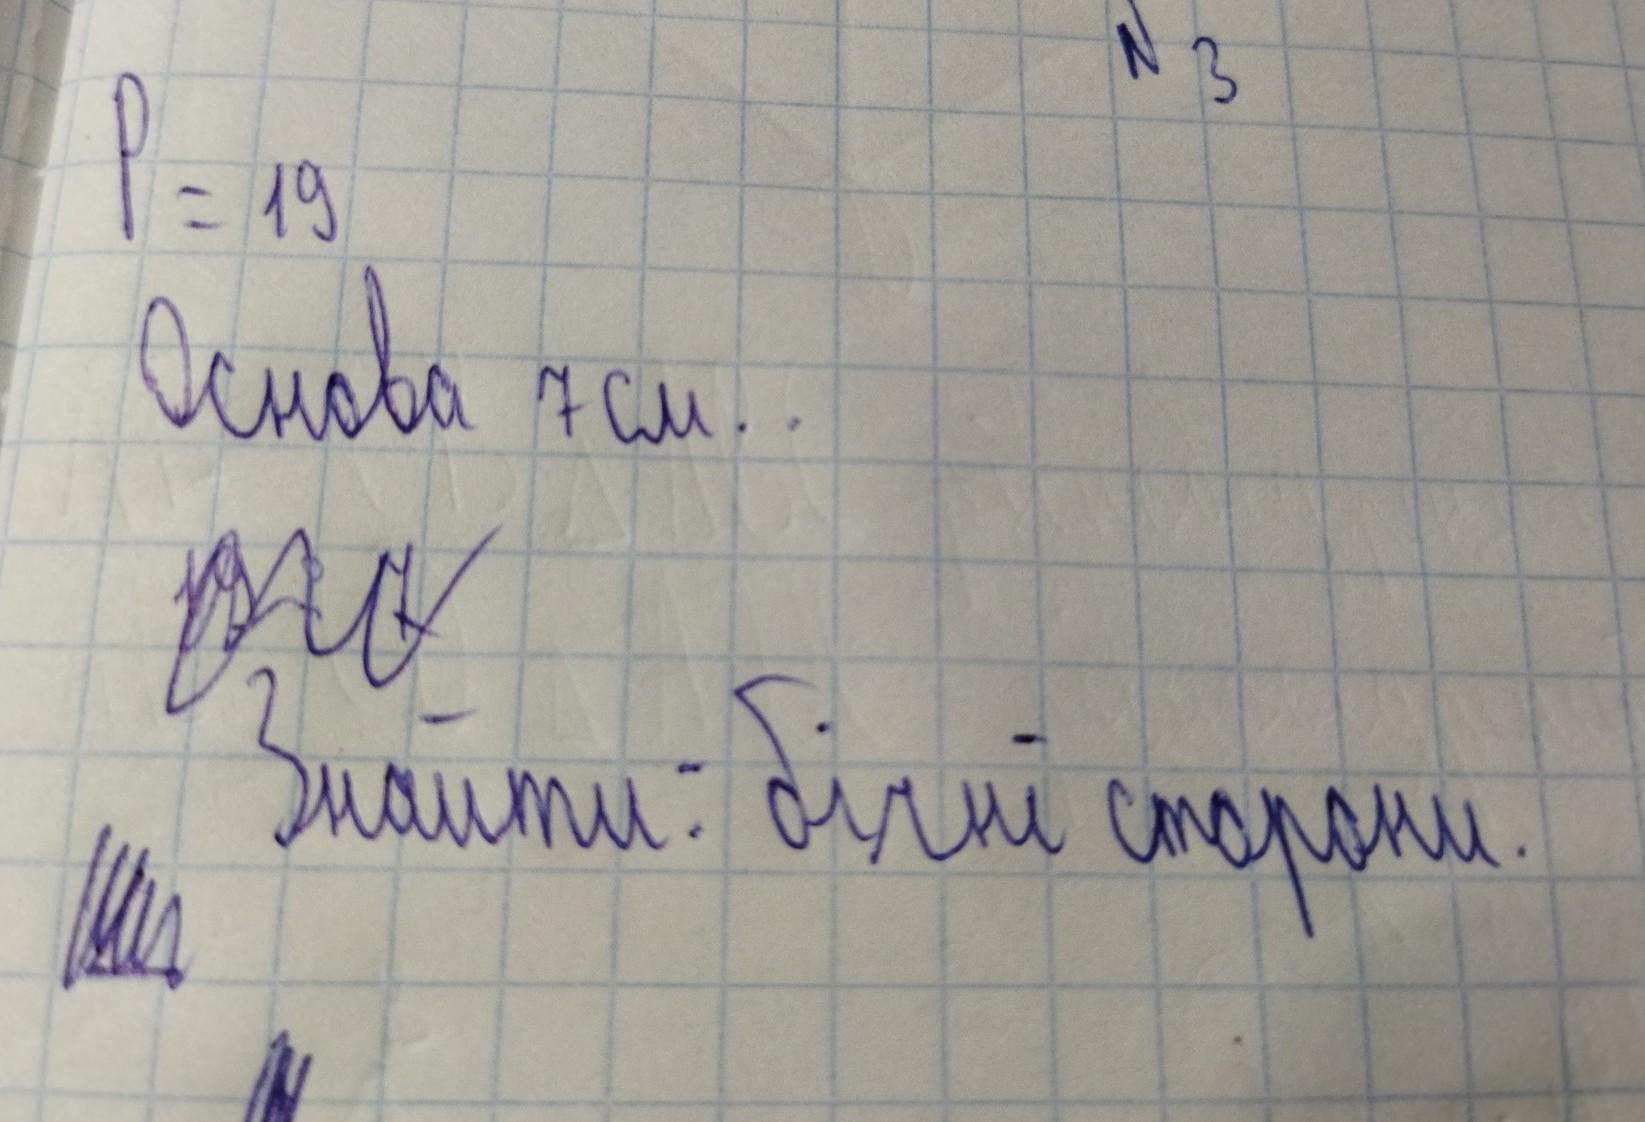 N 3
P = 19
Основа 7 см..
Знайти: бічні сторони.